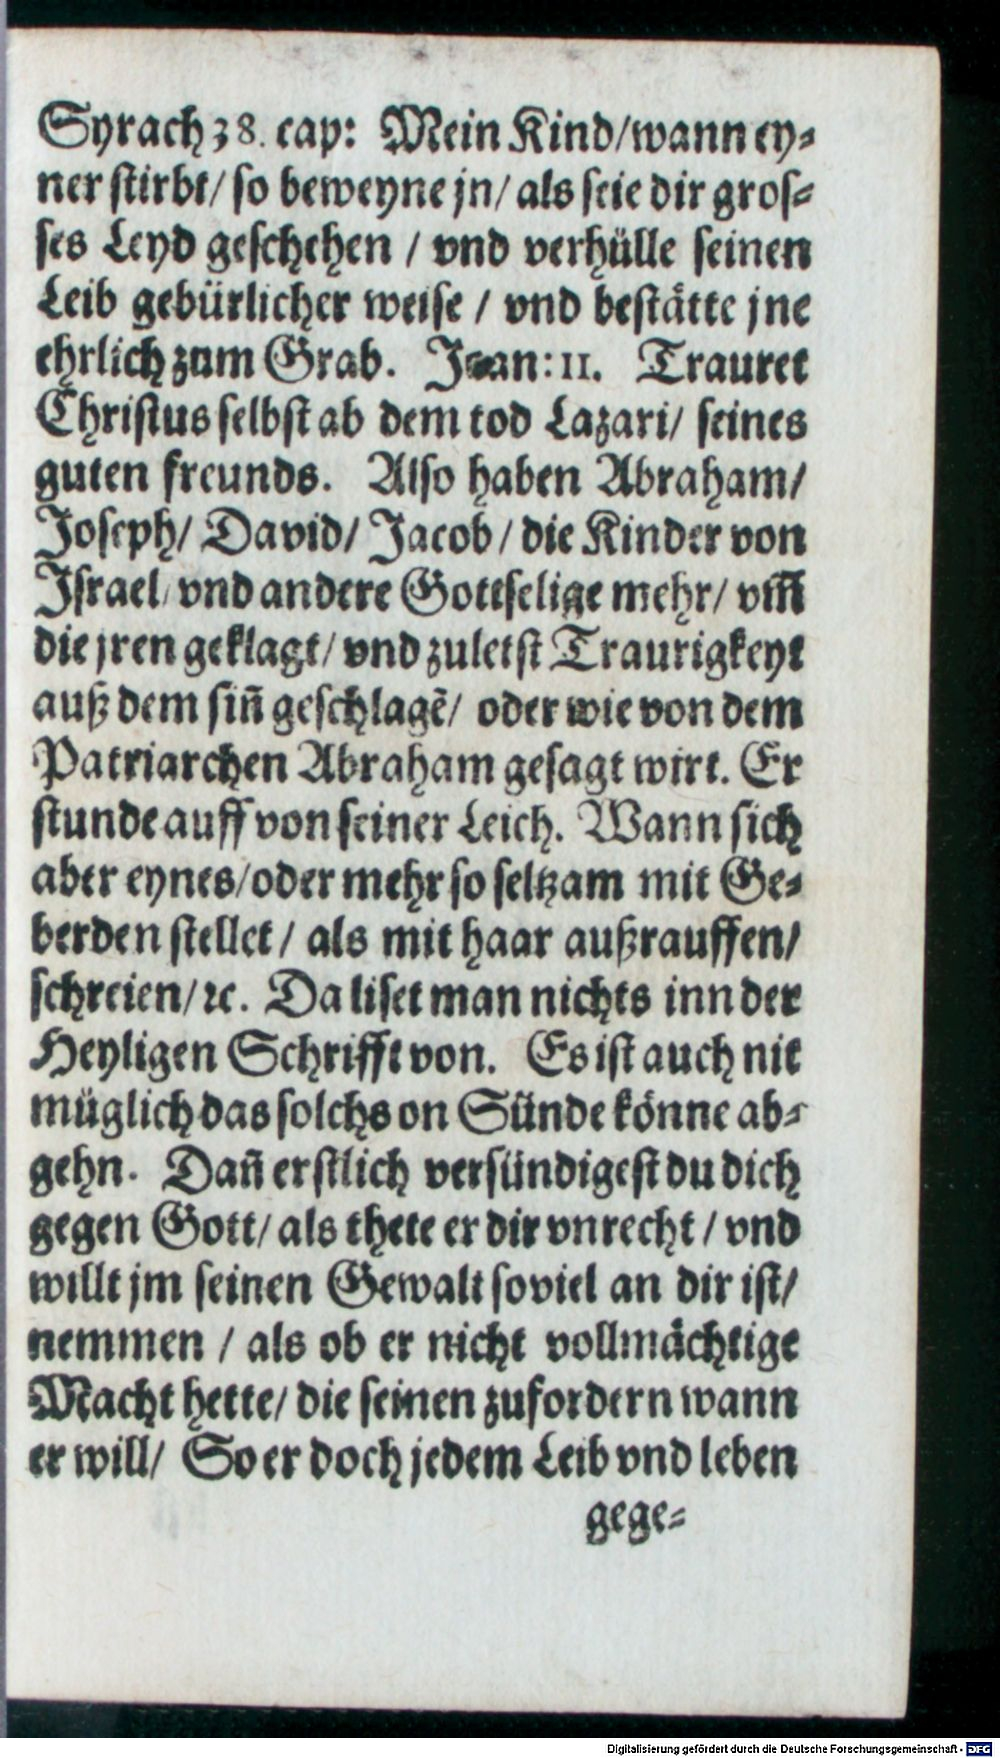 Syrach 38. cap: Mein Kind/wann ey-
ner stirbt/ so beweyne jn/ als seie dir gros-
ses Leyd geschehen / vnd verhülle seinen
Leib gebürlicher weise / vnd bestätte jne
ehrlich zum Grab. Joan: 11. Trauret
Christus selbst ab dem tod Lazari/ seines
guten freunds. Also haben Abraham/
Joseph/ David/ Jacob/ die Kinder von
Israel/ vnd andere Gottselige mehr/ vm̃
die jren geklagt/ vnd zuletst Traurigkeyt
auß dem siñ geschlagẽ/ oder wie von dem
Patriarchen Abraham gesagt wirt. Er
stunde auff von seiner Leich. Wann sich
aber eynes/oder mehr so seltzam mit Ge-
berden stellet/ als mit haar außrauffen/
schreien/ ꝛc. Da liset man nichts inn der
Heyligen Schrifft von. Es ist auch nit
müglich das solchs on Sünde könne ab-
gehn. Dañ erstlich versündigest du dich
gegen Gott/ als thete er dir vnrecht/ vnd
willt jm seinen Gewalt soviel an dir ist/
nemmen / als ob er nicht vollmächtige
Macht hette/ die seinen zufordern wann
er will/ So er doch jedem Leib vnd leben
gege-
Digitalisierung gefördert durch die Deutsche Forschungsgemeinschaft - DFG